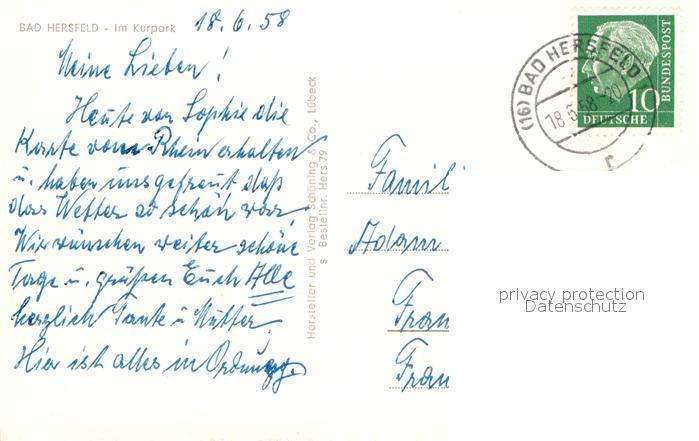 BAD HERSFELD - Im Kurpark
18.6.58
Meine Lieben!
Heute von Sophie die
Karte vom Rhein erhalten
u. haben uns gefreut daß
das Wetter so schön war
Wir wünschen weiter schöne
Tage u. grüßen Euch Alle
herzlich Tante u Mutter.
Hier ist alles in Ordnung.
Hersteller und Verlag Schöning & Co., Lübeck
S Bestellnr. Hers 79
(16) BAD HERSFELD
18.6.58-20
r
10
DEUTSCHE
BUNDESPOST
Famil
Adam
Fran
Fran
privacy protection
Datenschutz